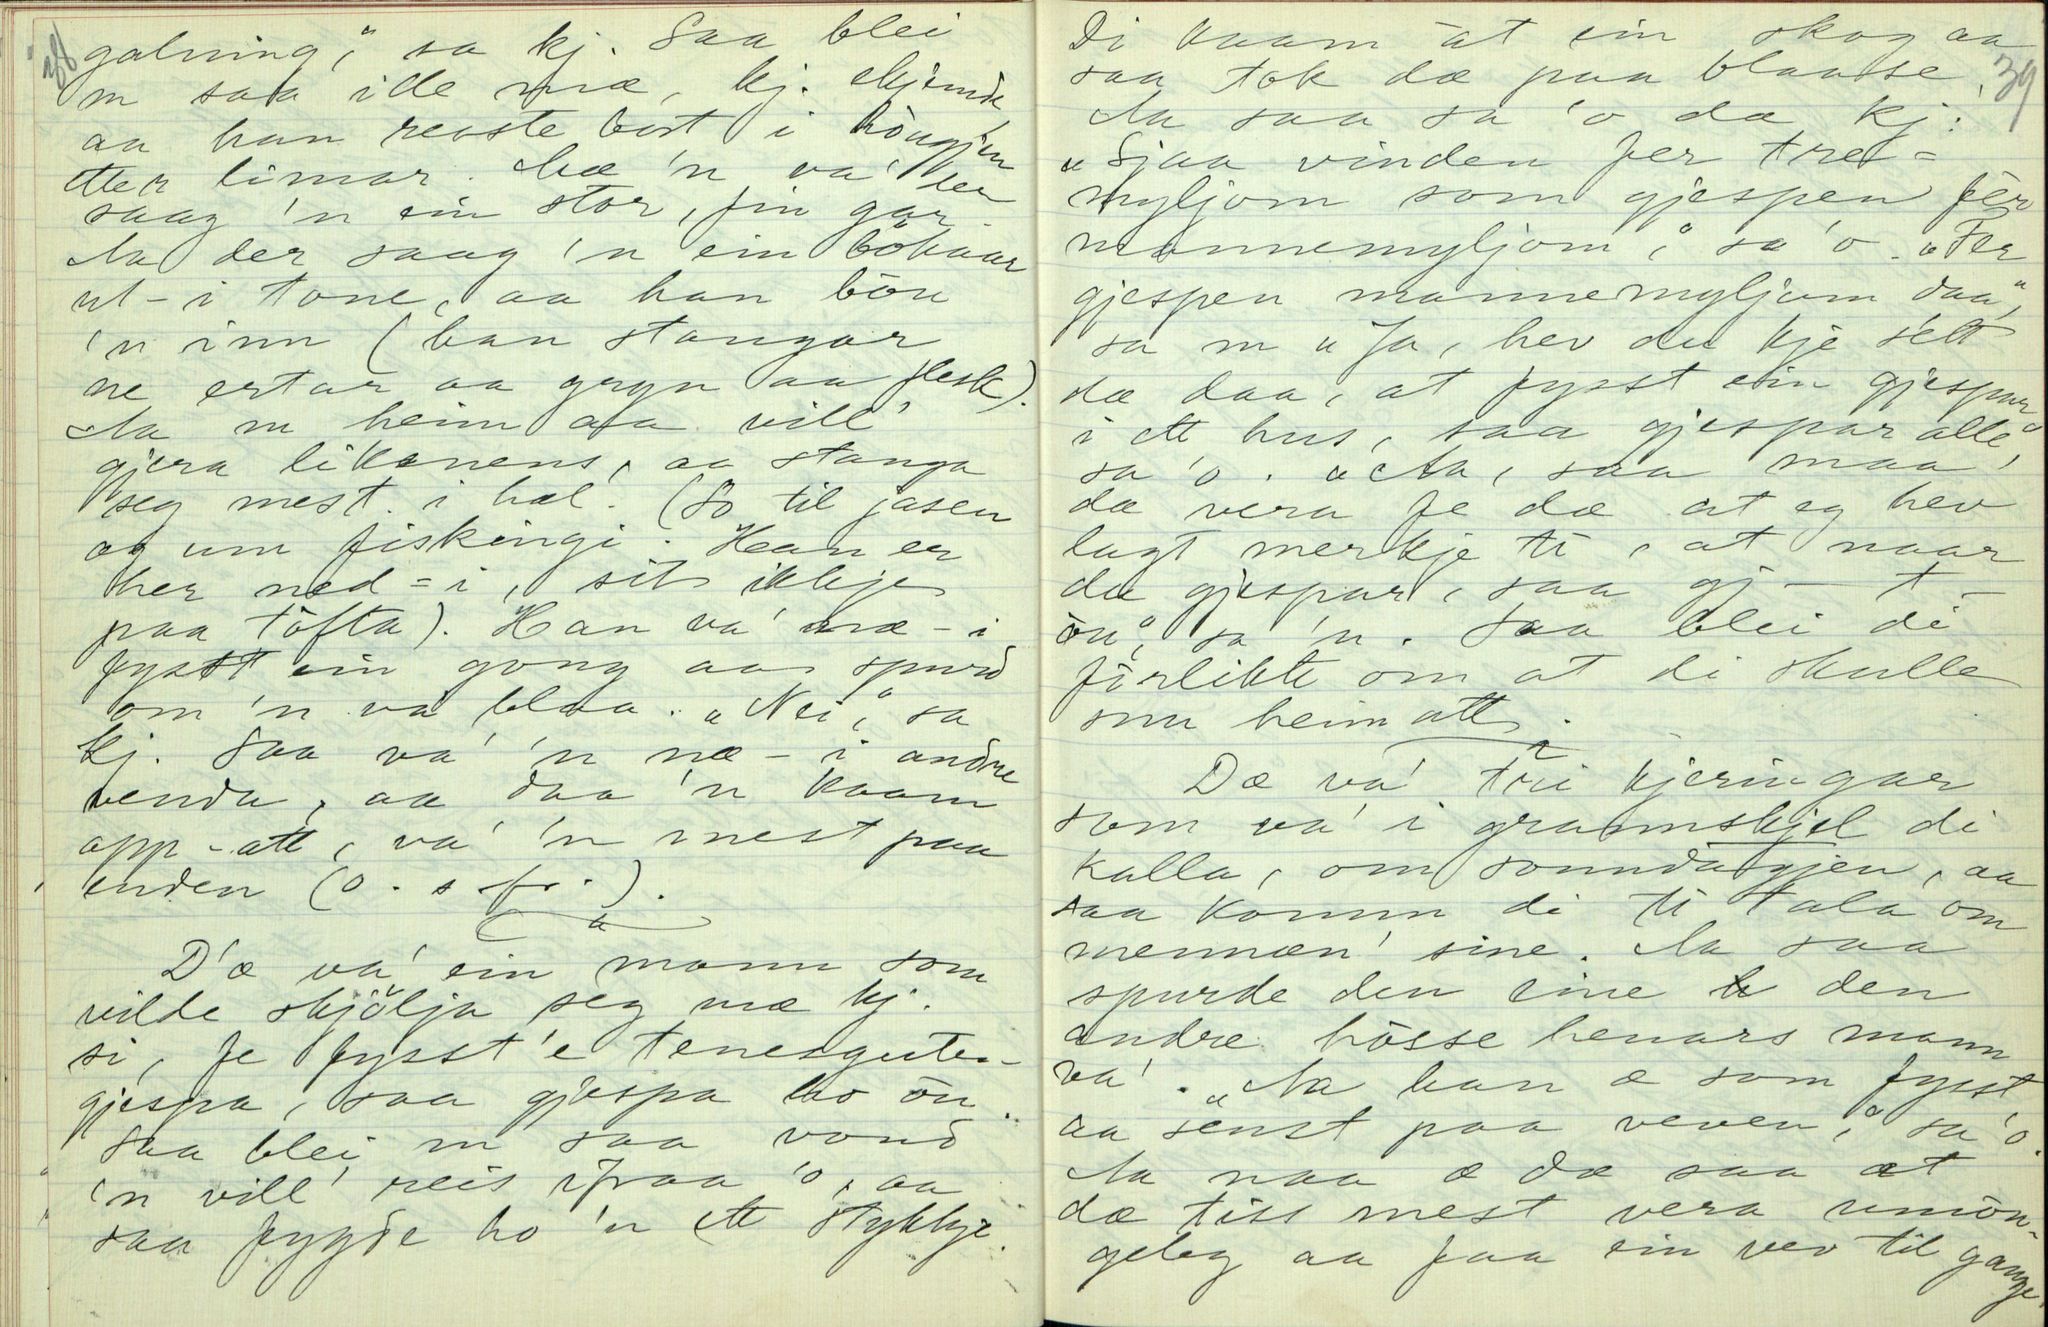 38
galning," sa kj. Saa blei
m saa ille mæ, kj. skjemde
aa han reiste bort i haugjen
etter limar. Mæ 'n va' der
saag 'n ein stor, fin gar.
Aa der saag 'n ein bökaar
ut-i tone, aa han bau
'n inn (han stangar
ne ertar aa gryn aa flesk).
Aa m heim aa vill'
gjera likenens, aa stanga
seg mest i hæl. (So til jasen
og um fiskingi. Han er
her ned-i, sit ikkje
paa töfta). Han va' næ-i
fysst ein gong aa spurd
om 'n va' blaa. „Nei," sa
kj. Saa va' 'n næ-i andre
venda, aa daa 'n kaam
opp-att, va' 'n mest paa
enden (o. s. fr.).
D'æ va' ein mann som
vilde skjölja seg mæ kj.
si, fe fysst 'e tenesguten
gjespa, saa gjespa ho òu.
Saa blei m saa vond
'n vill' reis ifraa 'o, aa
saa fygde ho 'n ett stykkje.
39
Di kaam åt ein skog aa
saa tok dæ paa blaase.
Aa saa sa 'o da kj:
„Sjaa vinden fer tre-
myljom som gjespen fêr
mannemyljom," sa 'o. „Fer
gjespen mannemyljom daa",
sa m „Ja, hev du kje sétt
dæ daa, at fysst ein gjespar
i ett hus, saa gjespar alle,"
sa 'o. „Aa, saa maa
dæ vera fe dæ at eg hev
lagt merkje ti, at naar
du gjespar, saa gj - t -
òu", sa 'n. Saa blei di
förlikte om at di skulle
snu heimatt.
Dæ va' tri kjeringar
som va' i grannskjel di
kalla, om sonndagjen, aa
saa komm di ti tala om
mennæn' sine. Aa saa
spurde den eine den
andre hòsse henars mann
va'. „Aa han æ som fysst
aa senst paa veven," sa 'o.
Aa naa æ dæ saa at
dæ tiss mest vera umòu-
geleg aa faa ein vev til gange,